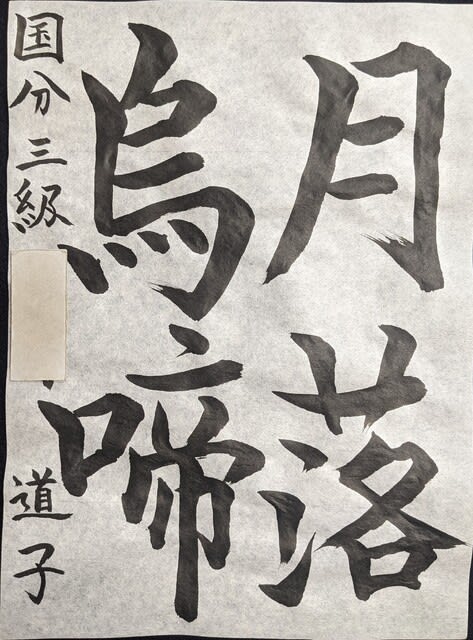 月落
烏啼
国分 三級 道子